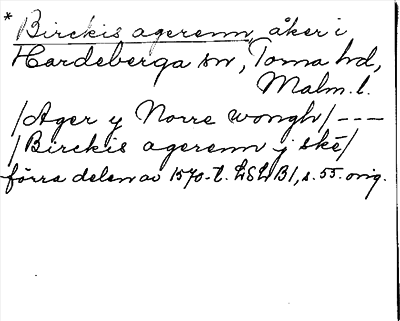 * Birckis agerenn, åker i
Hardeberga sn, Torna hd,
Malm. l.
/Ager y Norre wongh/ ---
/Birckis agerenn j skē/
förra delen av 1570-t. LSLB1, s. 55. orig.